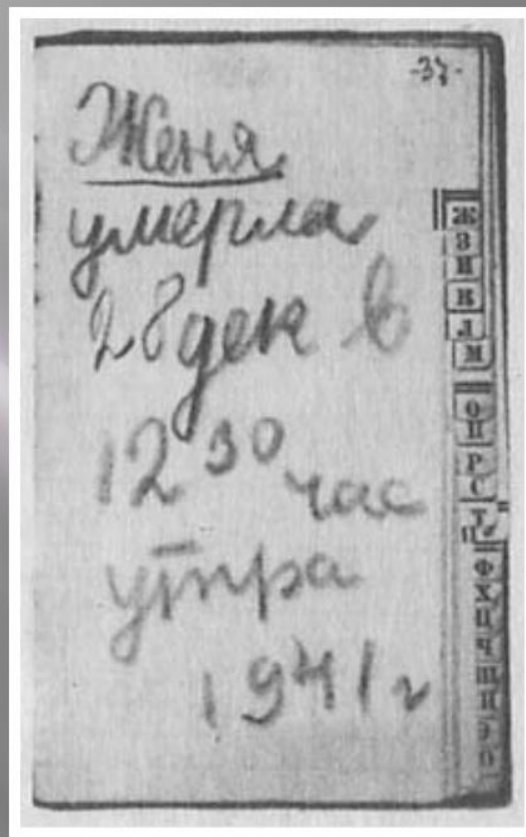 -37-
Женя
умерла
28 дек в
12 30 час
утра
1941 г
Ж
З
И
К
Л
М
О
П
Р
С
Т
У
Ф
Х
Ц
Ч
Ш
Щ
Э
Ю